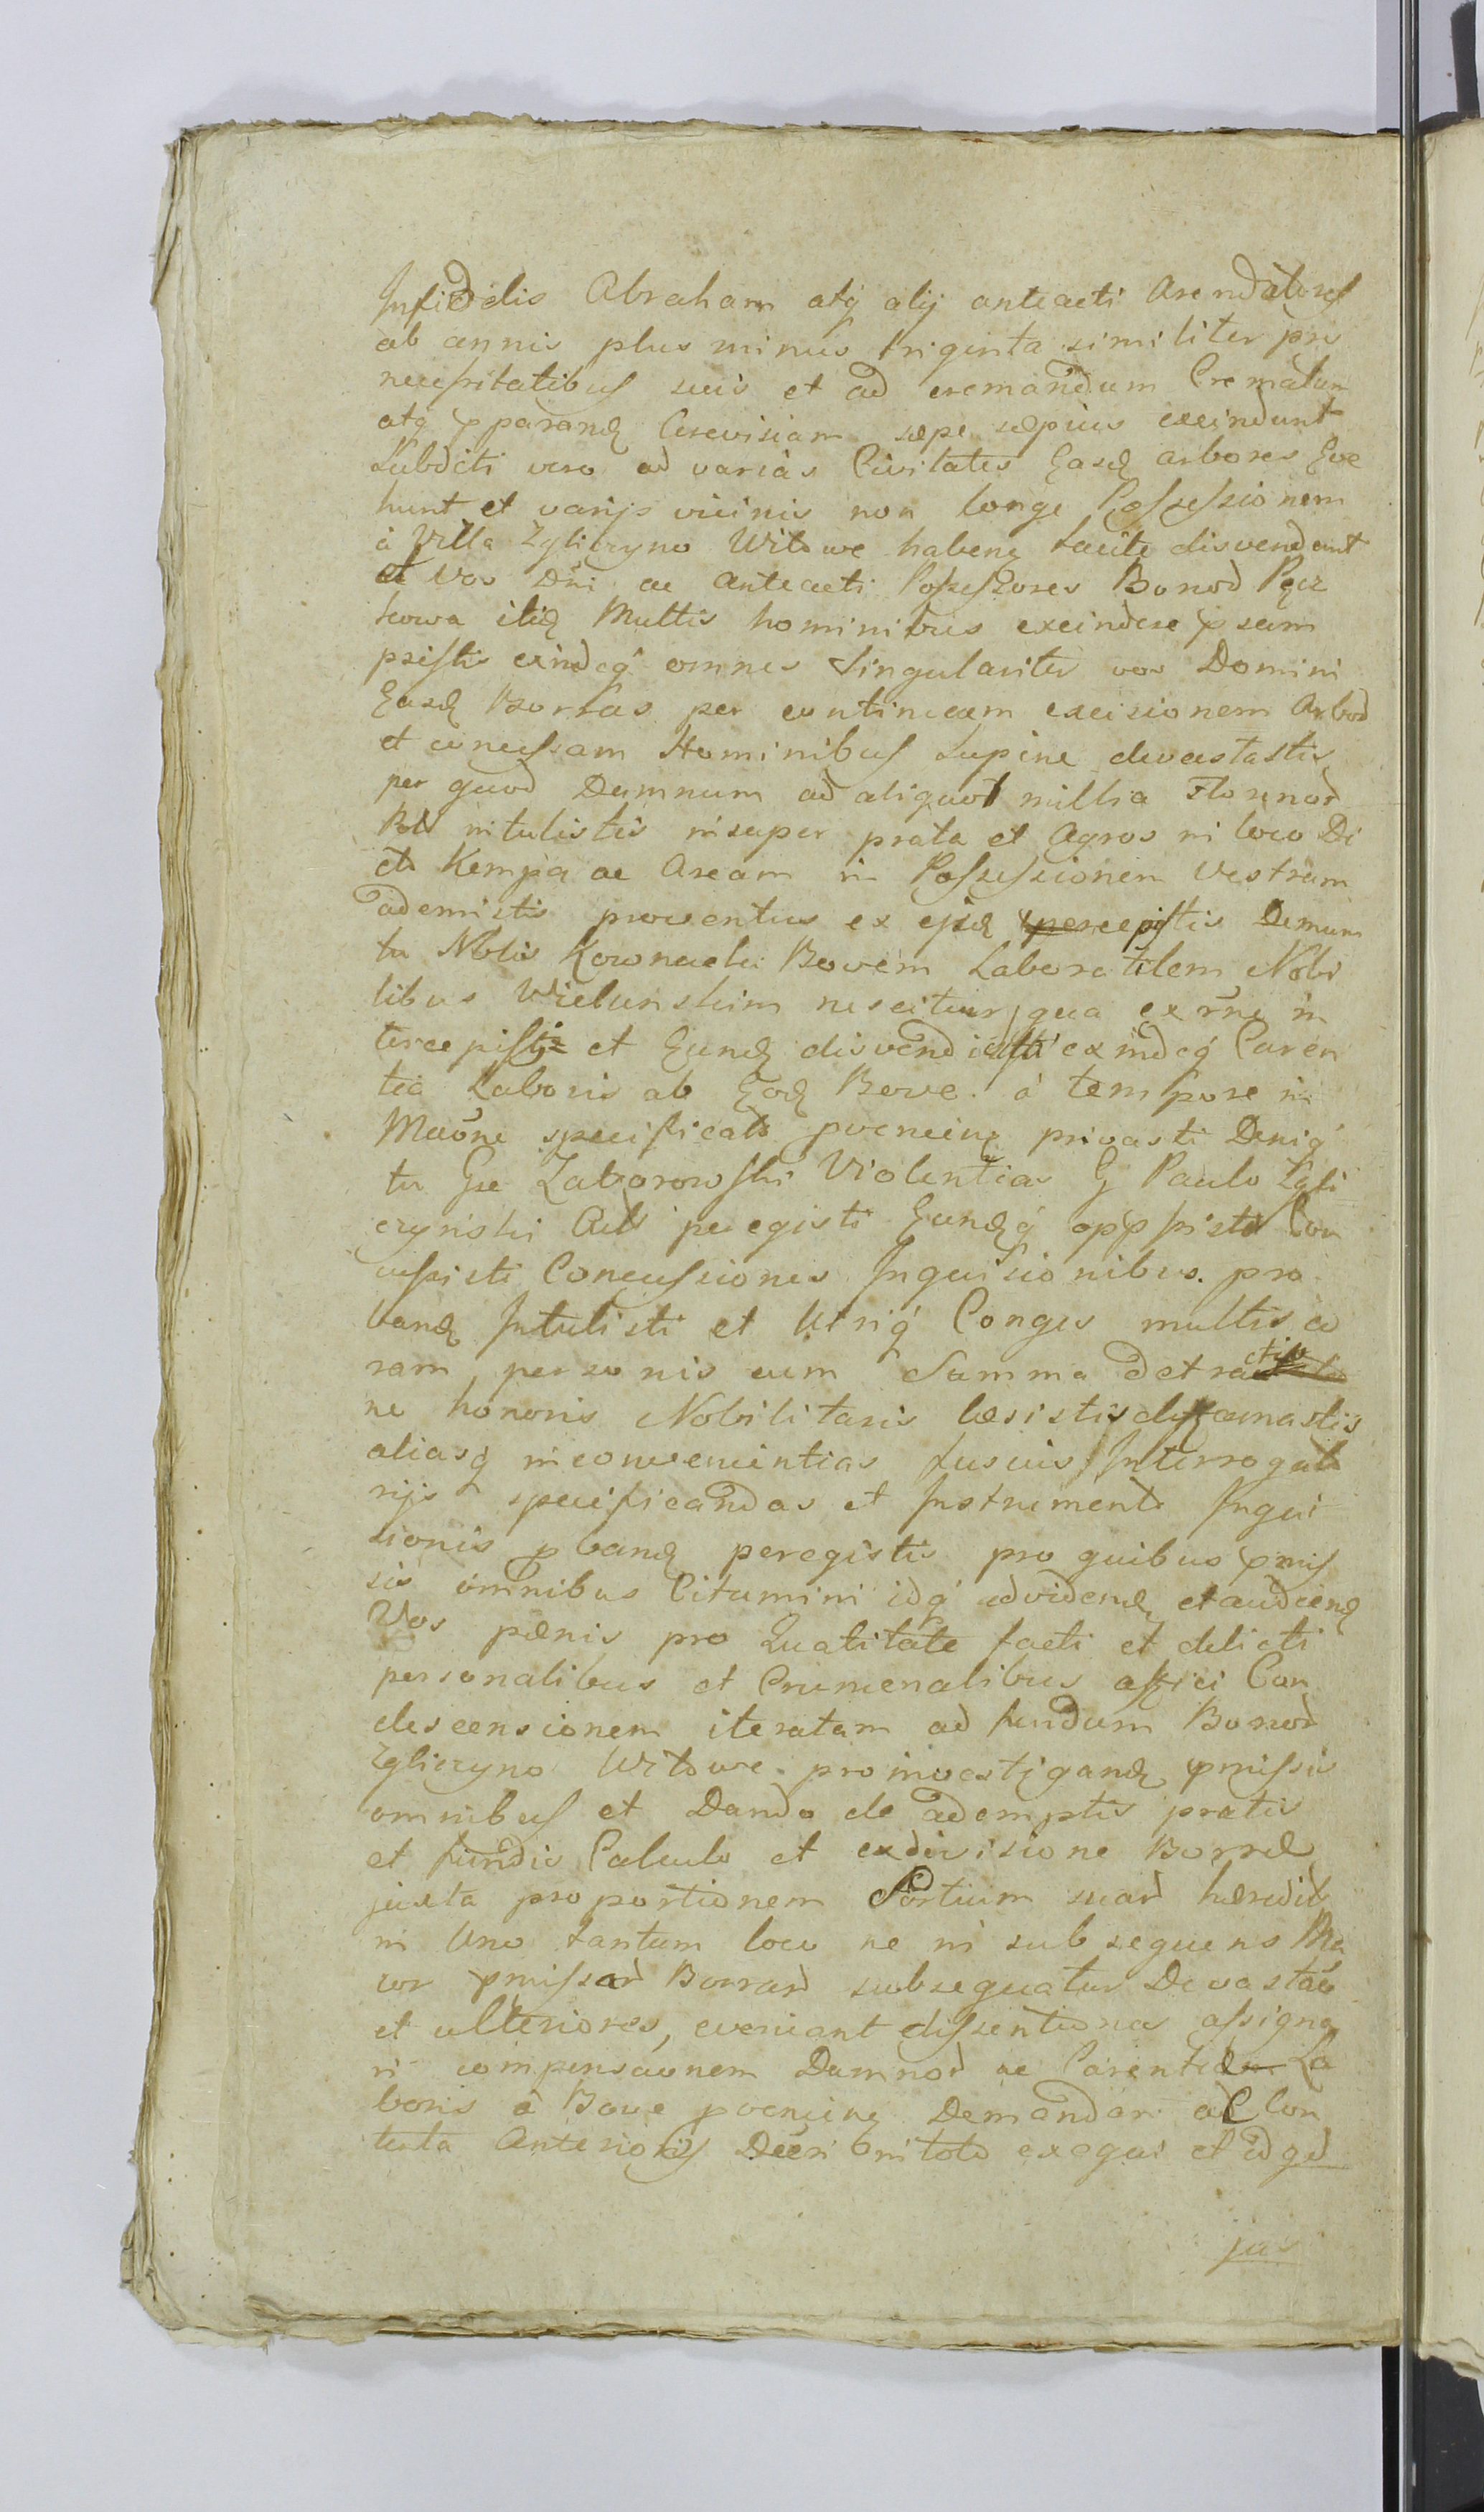 Infidelis Abraham atq́ alij anteacti Arendatores
ab annis plus minus triginta similiter pro
necessitatibus suis et ad cremandum Crematum
atq́ pparand Cerevisiam sæpe sæpius exeindunt
Subditi vero ad varias Civitates Easd arbores Eve
hunt et varijs vicinis non longe Possessionem
à Villa Zgliczyno Witowe habeng tacite disvendunt
et Vos Dni ac anteacti Possessores Bonod Pącz
kowa itid Multis hominibus exeindere psum
psistis exindeq́ omnes Singulariter vos Domini
Easd Borras per continuam excisionem Arbod
et concussam Hominibus Supine devastastis
per quod Damnum ad aliquot millia Florenod
Pol intulistis insuper prata et Agros in loco Di
cto Kempa ac Aream in Possessionem Vestram
ademistis proventus ex ejsd percepistis Demum
tu Nobis Kownacki Bovem Laboratilem Nobi
libus Wielunskim nescitur qua ex rne in
tercepisti et Eund disvendidisti exindeq́ Caren
tia Laboris ab Eod Bove à tempore in
Maōne specificato pveneing privasti Deniq́
tu Gse Zaborowski Violentias G Paulo Zgli
czynski Actó peregisti Eundq́ oppssisti Con
cussisti Concussiones Inquisionibus pro
band Intulisti et Utriq́ Conges multis co
ram personis cum Summa detractio
ne honoris Nobilitaris læsistis diffamastis
aliasq́ inconvenientias fusius Interrogato
rijs specificandas et Instrumento Inqui
sionis pband peregistis pro quibus pmis
sis omnibus Citamini idq́ advidend et audiend
Vos pænis pro Qualitate facti et delicti
personalibus et Crimenalibus affici Con
descensionem iteratam ad fundum Bonod
Zgliczyno Witowe pro investigand pmissis
omnibus et Dando de ademptis pratis
et fundis Calculo et exdivisione Borræ
juxta proportionem Sortium suard hæredit
in Uno tantum loco ne in subsequens Ma
ior pmissard Borrard subsequatur Devastao
et ulteriores, eveniant dissentiones assigna
ri compensaonem Damnod ac Carentiæ La
boris à Bove pveneing Demandari ac Con
tenta Anterioris Decri in toto exequi et idqd
jus